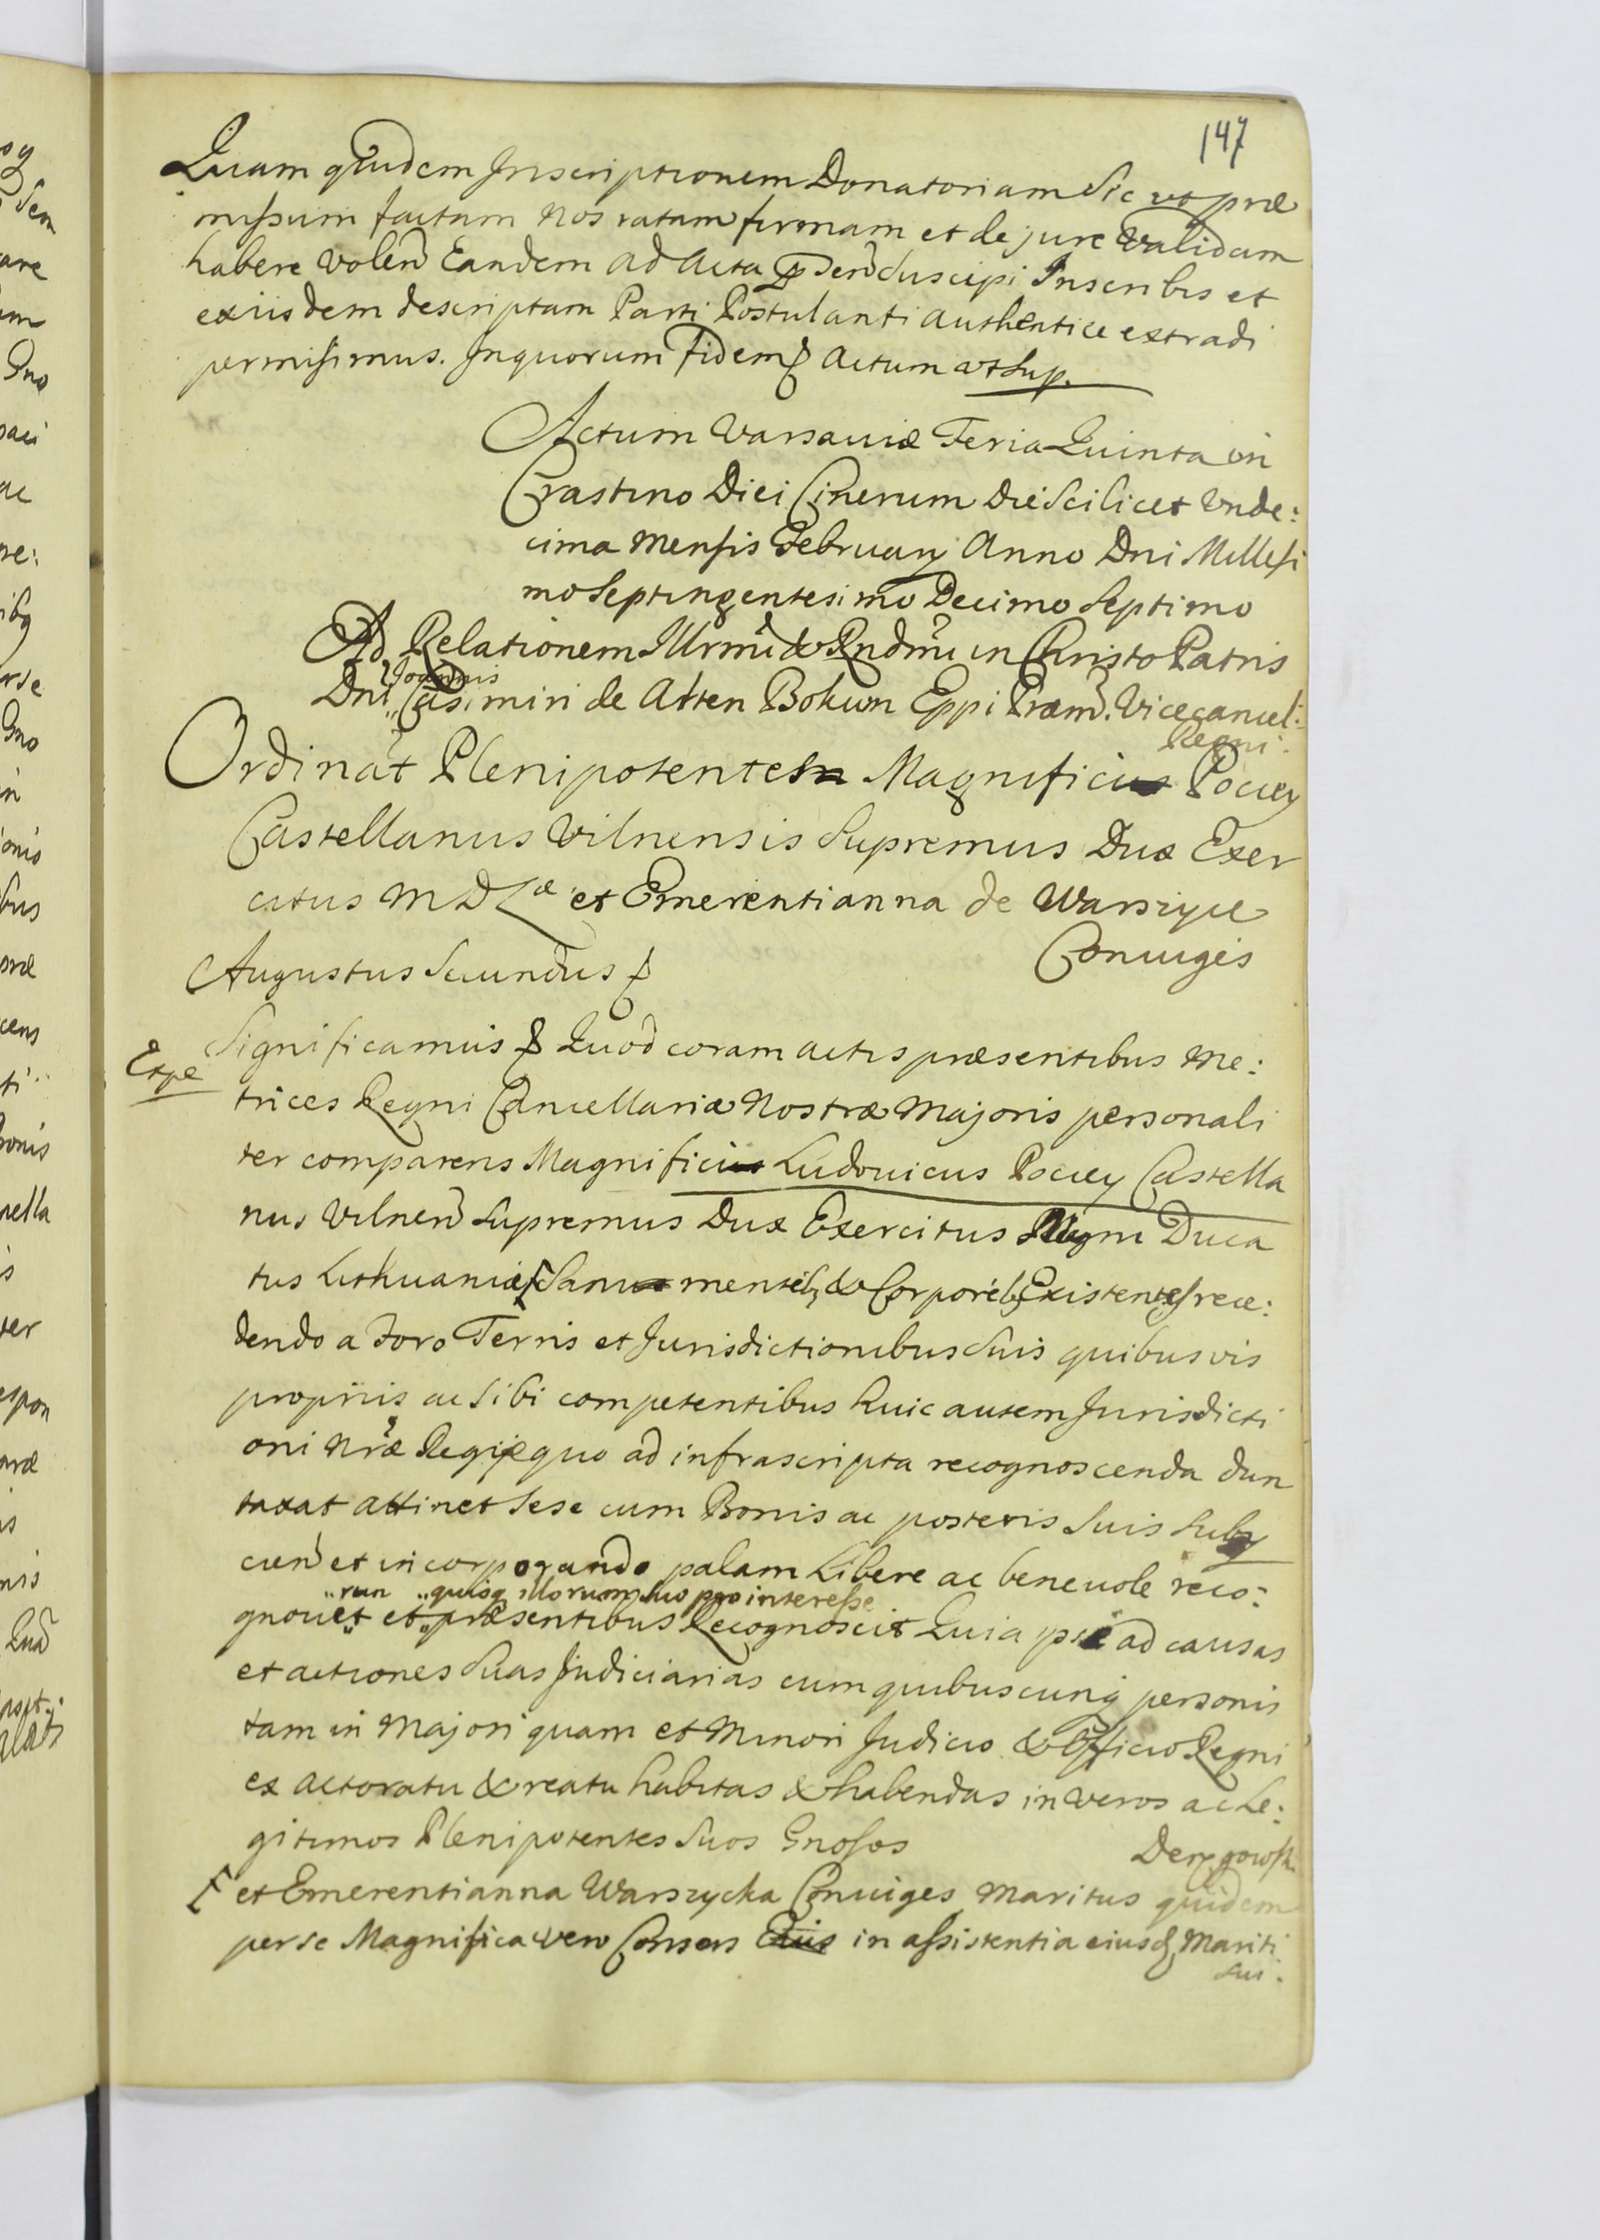 147
Quam quidem Inscriptionem Donatoriam Sic ut præ
missum factam nos ratam firmam et de jure Validam
habere volen Eandem ad Acta Psen Suscipi Inscribis et
exiisdem descriptam Parti Postulanti authentice extradi
permisimus. Inquorum Fidem Actum ut Sup.
Actum Varsaviæ Feria Quinta in
Crastino Diei Cinerum Die Scilicet Unde:
cima Mensis February Anno Dni Millesi
mo Septingentesimo Decimo Septimo
Ad Relationem Illrmi & Rndmi in Christo Patris
Joannis
Dni Casimiri de Alten Bokum Eppi Præm. Vicecancel:
Regni.
Ordinat Plenipotentes Magnifici Pociey
Castellanus Vilnensis Supremus Dux Exer
citus M D L et Emerentianna de Warszyce
Coniuges
Augustus Secundus
Significamus Quod coram actis præsentibus Me:
Expe
trices Regni Cancellariæ Nostræ Majoris personali
ter comparens Magnifici Ludovicus Pociey Castella
nus Vilnen Supremus Dux Exercitus Magni Duca
tus Lithuaniæ San menteb & Corporeb Existentes rece:
dendo a Foro Terris et Jurisdictionibus Suis quibusvis
propriis ac Sibi competentibus huic autem Jurisdicti
oni nræ Regiæ quo ad infrascripta recognoscenda dun
taxat attinet Sese cum Bonis ac posteris Suis Suby
cien et incorporando palam Libere ac benevole reco:
"run "quisq illorum suo pro interesse
gnouet et præsentibus Recognoscit Quia ipse ad causas
et actiones Suas Judiciarias cum quibuscunq personis
tam in Majori quam et Minori Judicio & Officio Regni
ex actoratu & reatu habitas & habendas in veros ac Le:
gitimos Plenipotentes Suos Gnosos
[ et Emerentianna Warszycka Coniuges Maritus quidem
per se Magnifica vero Consors Eius in assistentia eiusd Mariti
Sui.